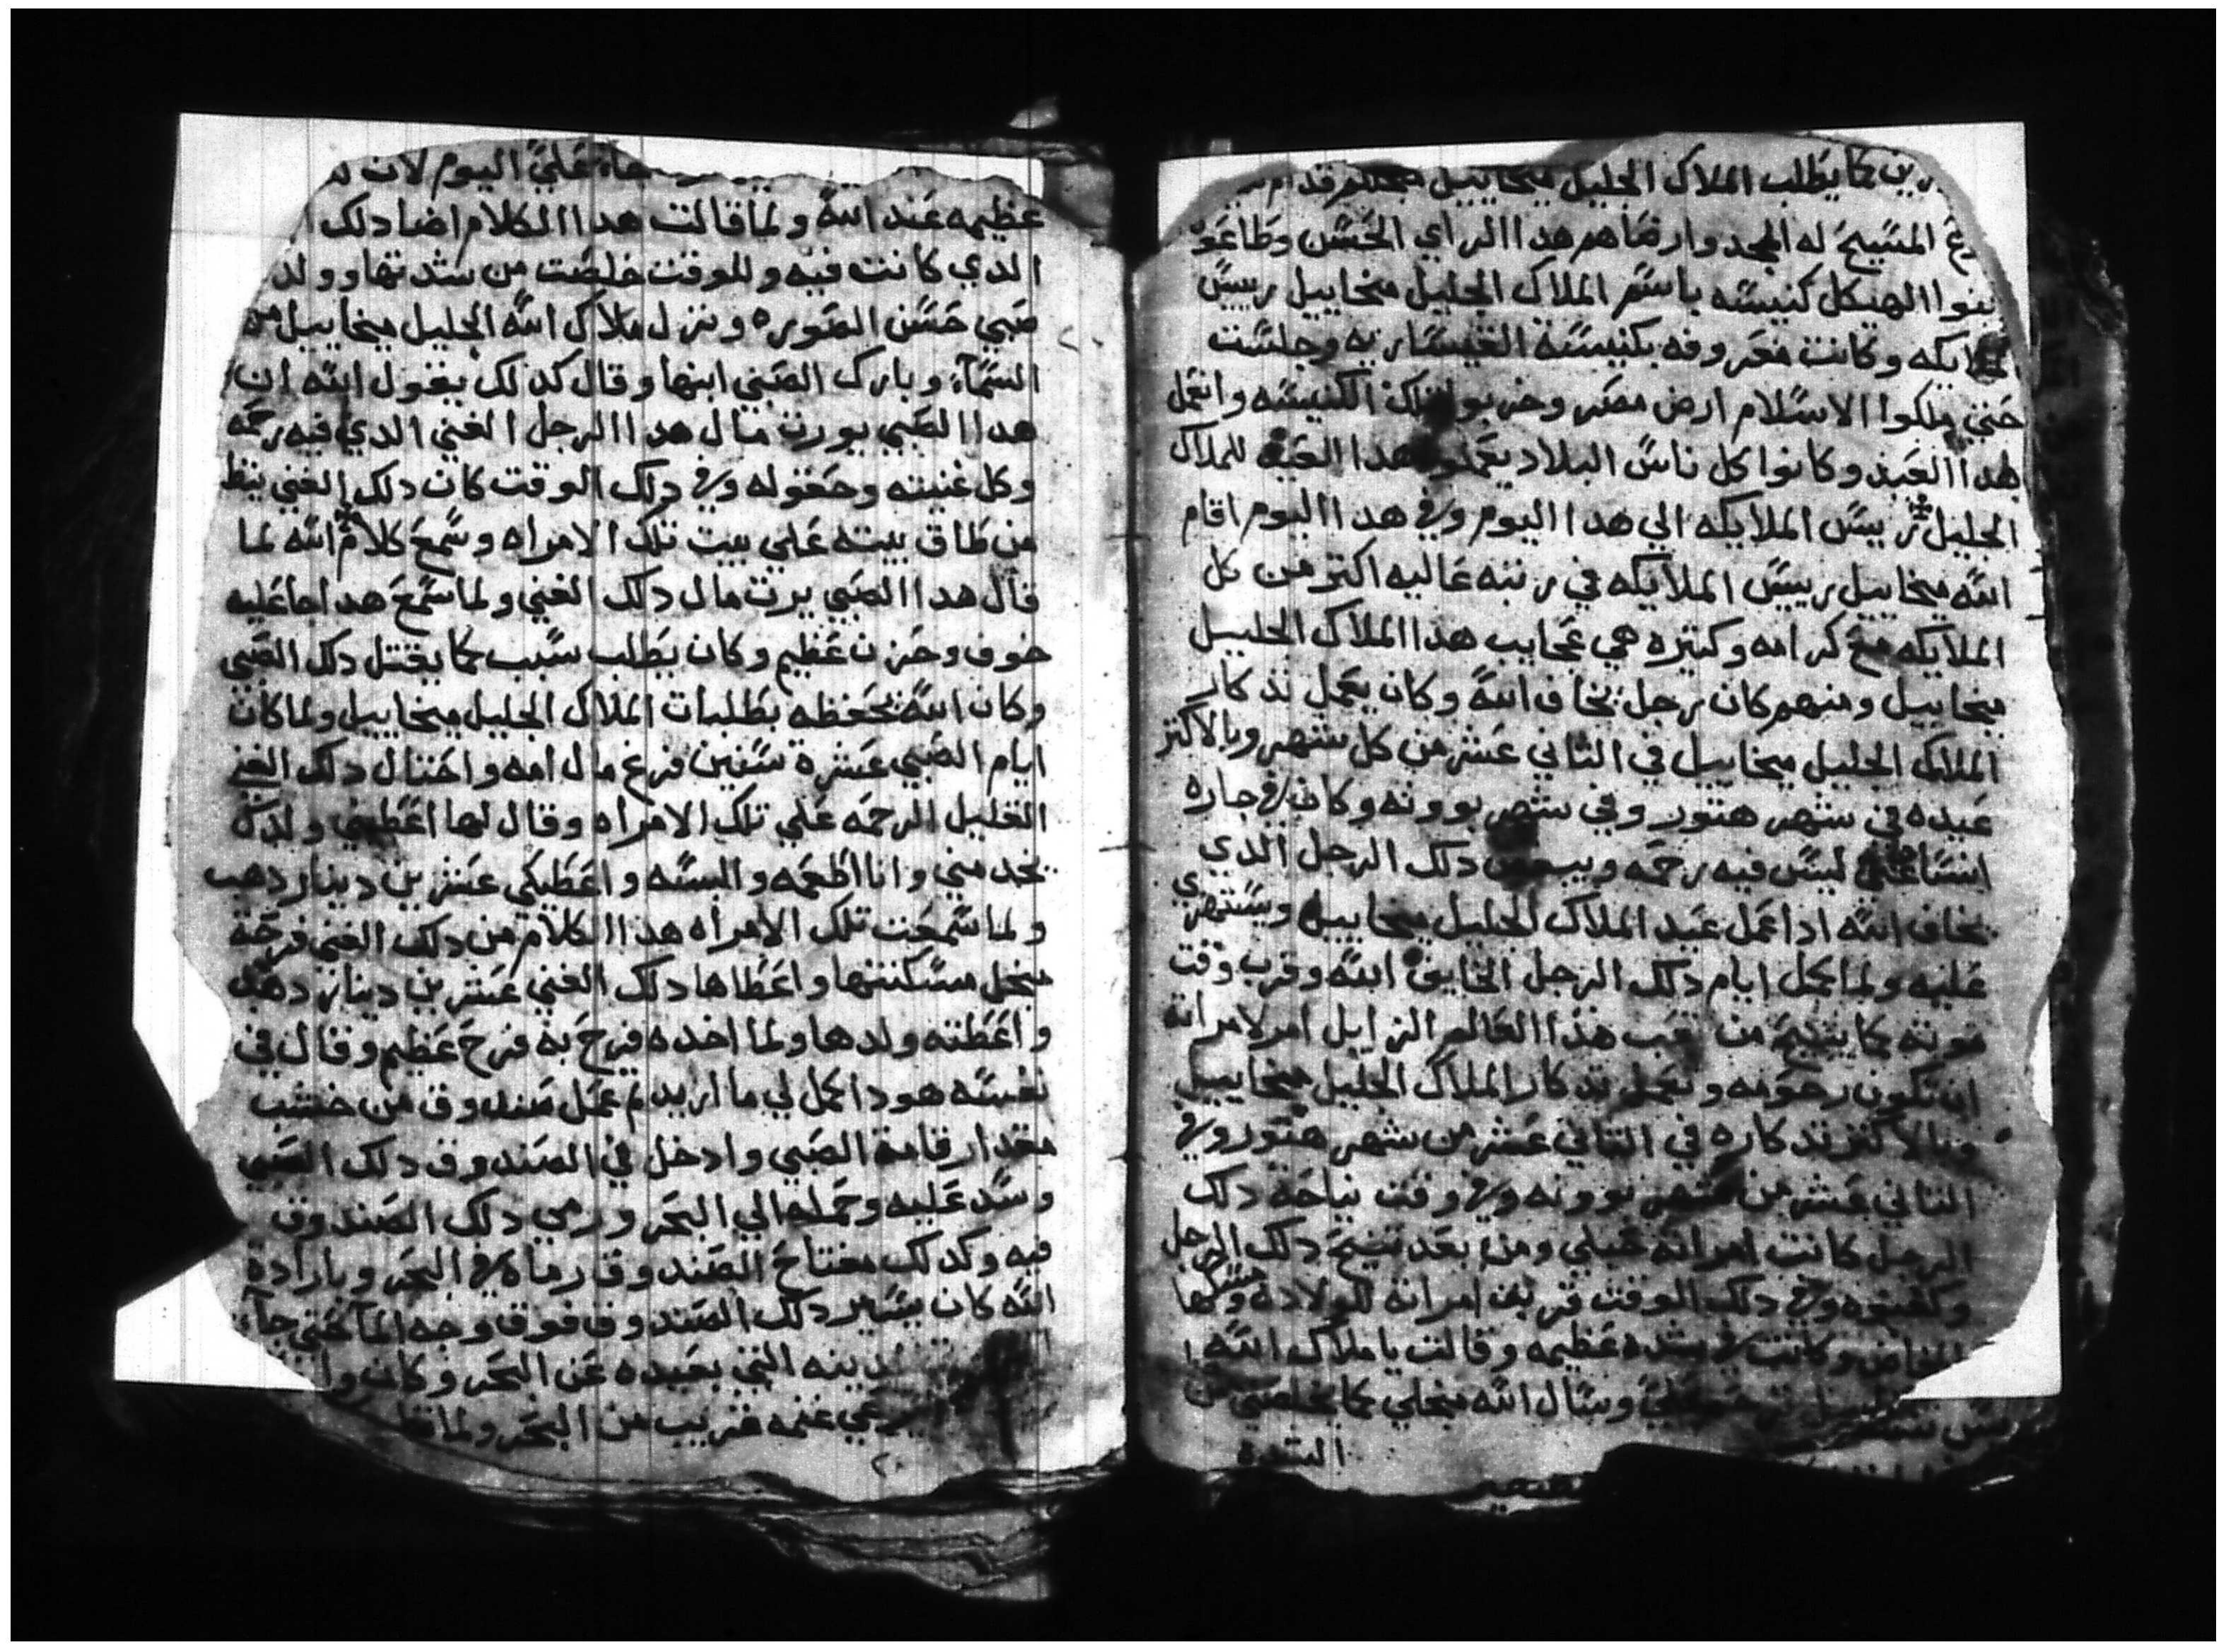 كما يطلب الملاك الجليل ميخاييل
المسيح له المجد وارضاهم هدا الراي الحسن وطاعو
بنوا الهيكل كنيسه باسم الملاك الجليل ميخاييل رييس
الملايكه وكانت معروفه بكنيسة القيساريه وجلست
حتي ملكوا الاسلام ارض مصر وخربو تلك الكنيسه وانعمل
هدا العيد وكانوا كل ناس البلاد يعملو هدا العيد للملاك
الجليل رييس الملايكه الي هدا اليوم وفي هدا اليوم اقام
الله ميخاييل رييس الملايكه في رتبه عاليه اكتر من كل
الملايكه مع كرامه وكتيره هي عجايب هدا الملاك الجليل
ميخاييل ومنهم كان رجل يخاف الله وكان يعمل تدكار
الملاك الجليل ميخاييل في التاني عشر من كل شهر وبالاكتر
عيده في شهر هتور وفي شهر بوونه وكان في جاره
انسان غني ليس فيه رحمه دلك الرجل الدي
يخاف الله ادا عمل عيد الملاك الجليل ميخاييل ويستهزي
عليه ولما كمل ايام دلك الرجل الخايف الله وقرب وقت
موته كما يتنيح من تعب هدا العالم الزايل امر لامراته
ان تكون رحومه وتعمل تدكار الملاك الجليل ميخاييل
وبالاكتر تدكاره في التاني عشر من شهر هتور وفي
التاني عشر من شهر بوونه وفي وقت نياحة دلك
الرجل كانت امراته حبلي ومن بعد تنيح دلك الرجل
وكفنوه وفي دلك الوقت قربت امراته للولاده ومسكها
المخاض وكانت في شده عظيمه وقالت يا ملاك الله
وسال الله ميخلي كما يخلصني من
الشده
علي اليوم لان
عظيمه عند الله ولما قالت هدا الكلام اضا دلك
الدي كانت فيه وللوقت خلصت من شدتها وولد
صبي حسن الصوره ونزل ملاك الله الجليل ميخاييل من
السمآء وبارك الصبي ابنها وقال كدلك يقول الله ان
هدا الصبي يورت مال هدا الرجل الغني الدي فيه رحمه
وكل غنيته وحقوله وفي دلك الوقت كان دلك الغني ينظ
من طاق بيته علي بيت تلك الامراه وسمع كلام الله لما
قال هدا الصبي يرت مال دلك الغني ولما سمع هدا جا عليه
خوف وحزن عظيم وكان يطلب سبب كما يقتل دلك الصبي
وكان الله يحفظه بطلبات الملاك الجليل ميخاييل ولما كان
ايام الصبي عشرة سنين فرغ مال امه واحتال دلك الغني
القليل الرحمه علي تلك الامراه وقال لها اعطيني ولدك
يخدمني وانا اطعمه والبسه واعطيكي عشرين دينار دهب
ولما سمعت تلك الامراه هدا الكلام من دلك الغني فرحة
ميخل مسكنتها واعطاها دلك الغني عشرين دينار دهب
واعطته ولدها ولما اخده فرح به فرح عظيم وقال في
نفسه هودا كمل لي ما اريد م عمل صندوق من خشب
مقدار قامة الصبي وادخل في الصندوق دلك الصبي
وسد عليه وحمله الي البحر ورمي دلك الصندوق
فيه وكدلك مفتاح الصندوق رماه في البحر وبارادة
الله كان يسير دلك الصندوق فوق وجه المآ حتي جاء
التي بعيده عن البحر وكان
غنمه قريب من البحر ولما